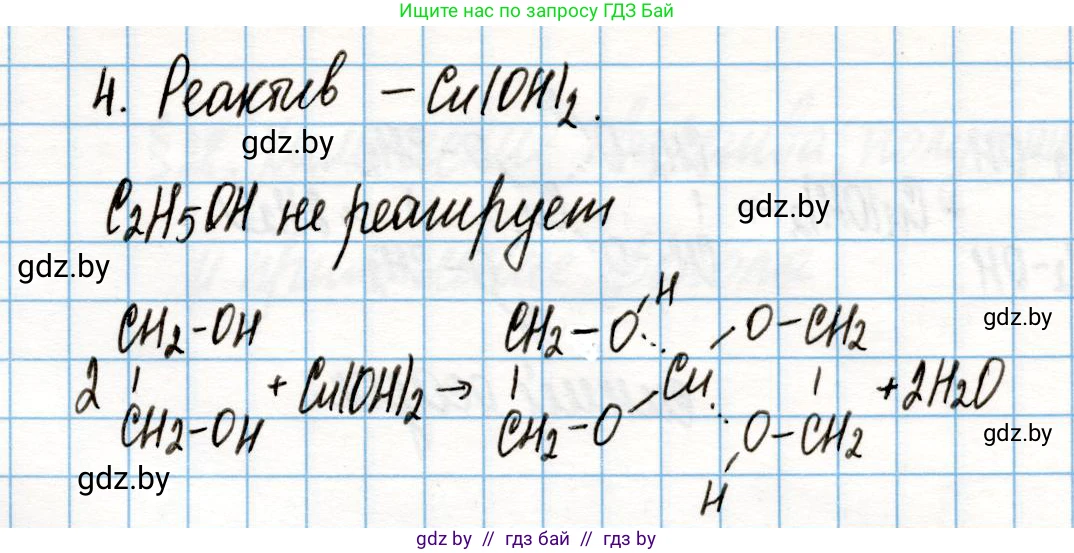 Ищите нас по запросу ГДЗ Бай
4. Реактив – Cu(OH)2.
gdz.by
C2H5OH не реагирует
gdz.by
gdz.by
H
CH2-OH CH2-O O-CH2
gdz.by
2 + Cu(OH)2 → Cu +2H2O
CH2-OH CH2-O O-CH2
gdz.by
gdz.by
H
gdz.by // гдз бай // гдз by